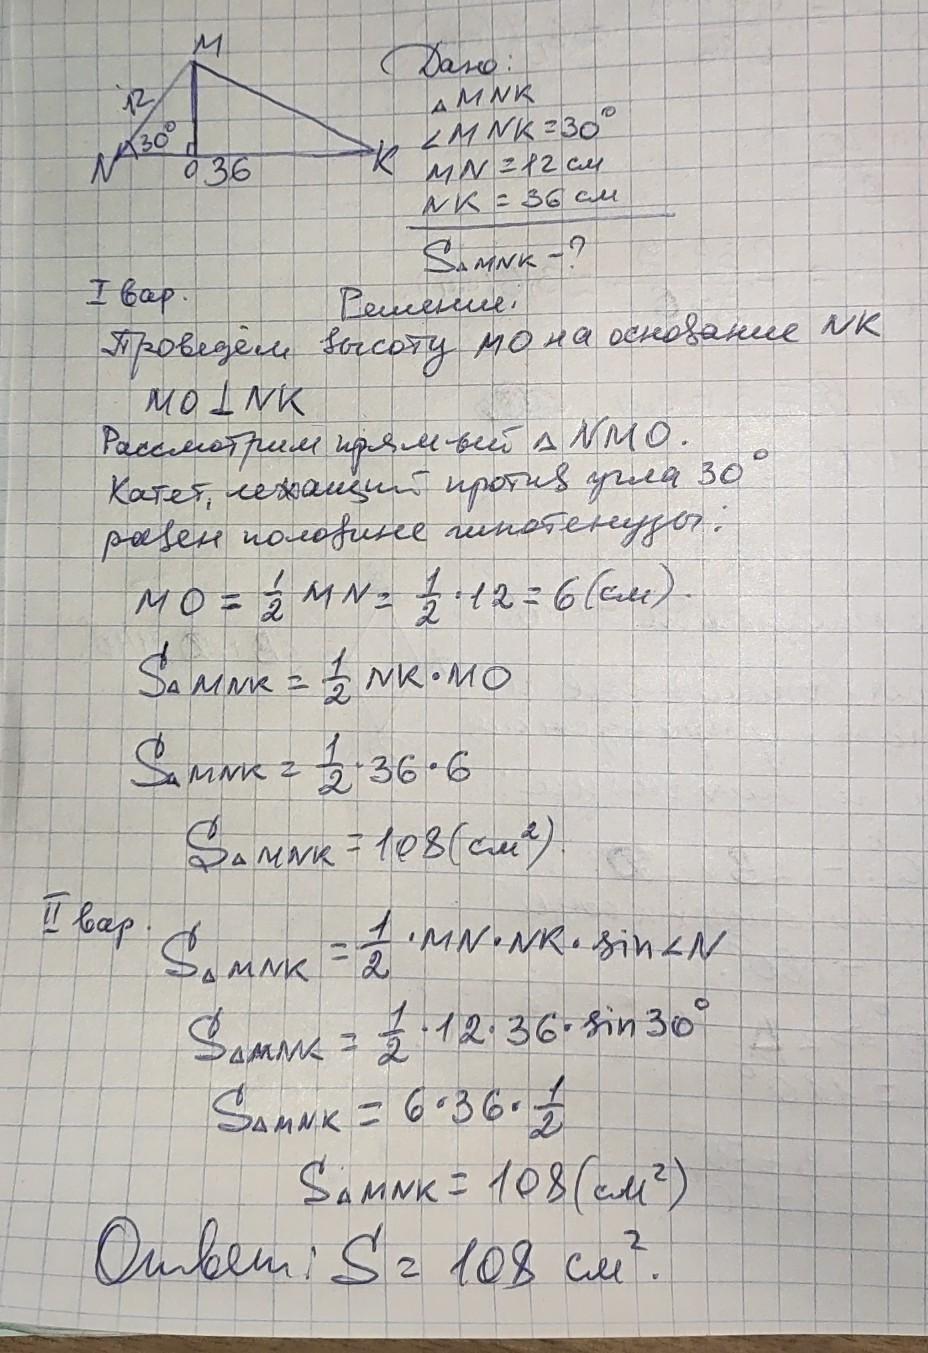 M
12
30°
N
O 36
K
Дано:
△MNK
∠MNK=30°
MN=12 см
NK = 36 см
S△MNK -?
I вар.
Решение:
Проведём высоту MO на основание NK
MO⊥NK
Рассмотрим прям-ый △NMO.
Катет, лежащий против угла 30°
равен половине гипотенузы:
MO = 1/2 MN = 1/2 · 12 = 6 (см).
S△MNK = 1/2 NK·MO
S△MNK = 1/2 · 36 · 6
S△MNK = 108 (см²).
II вар.
S△MNK = 1/2 · MN · NK · sin∠N
S△MNK = 1/2 · 12 · 36 · sin30°
S△MNK = 6 · 36 · 1/2
S△MNK = 108 (см²)
Ответ: S = 108 см².